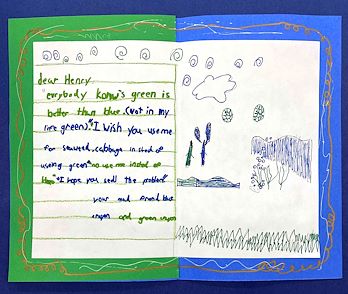 dear Hency
"evrybody konw's green is
better than blue. (not in my
life green)." "I wish you use me
for seaweed, cabbage in sted of
useing green" no use me insted of
"I hope you sell the problem
your and proud blue
crayon and green crayon